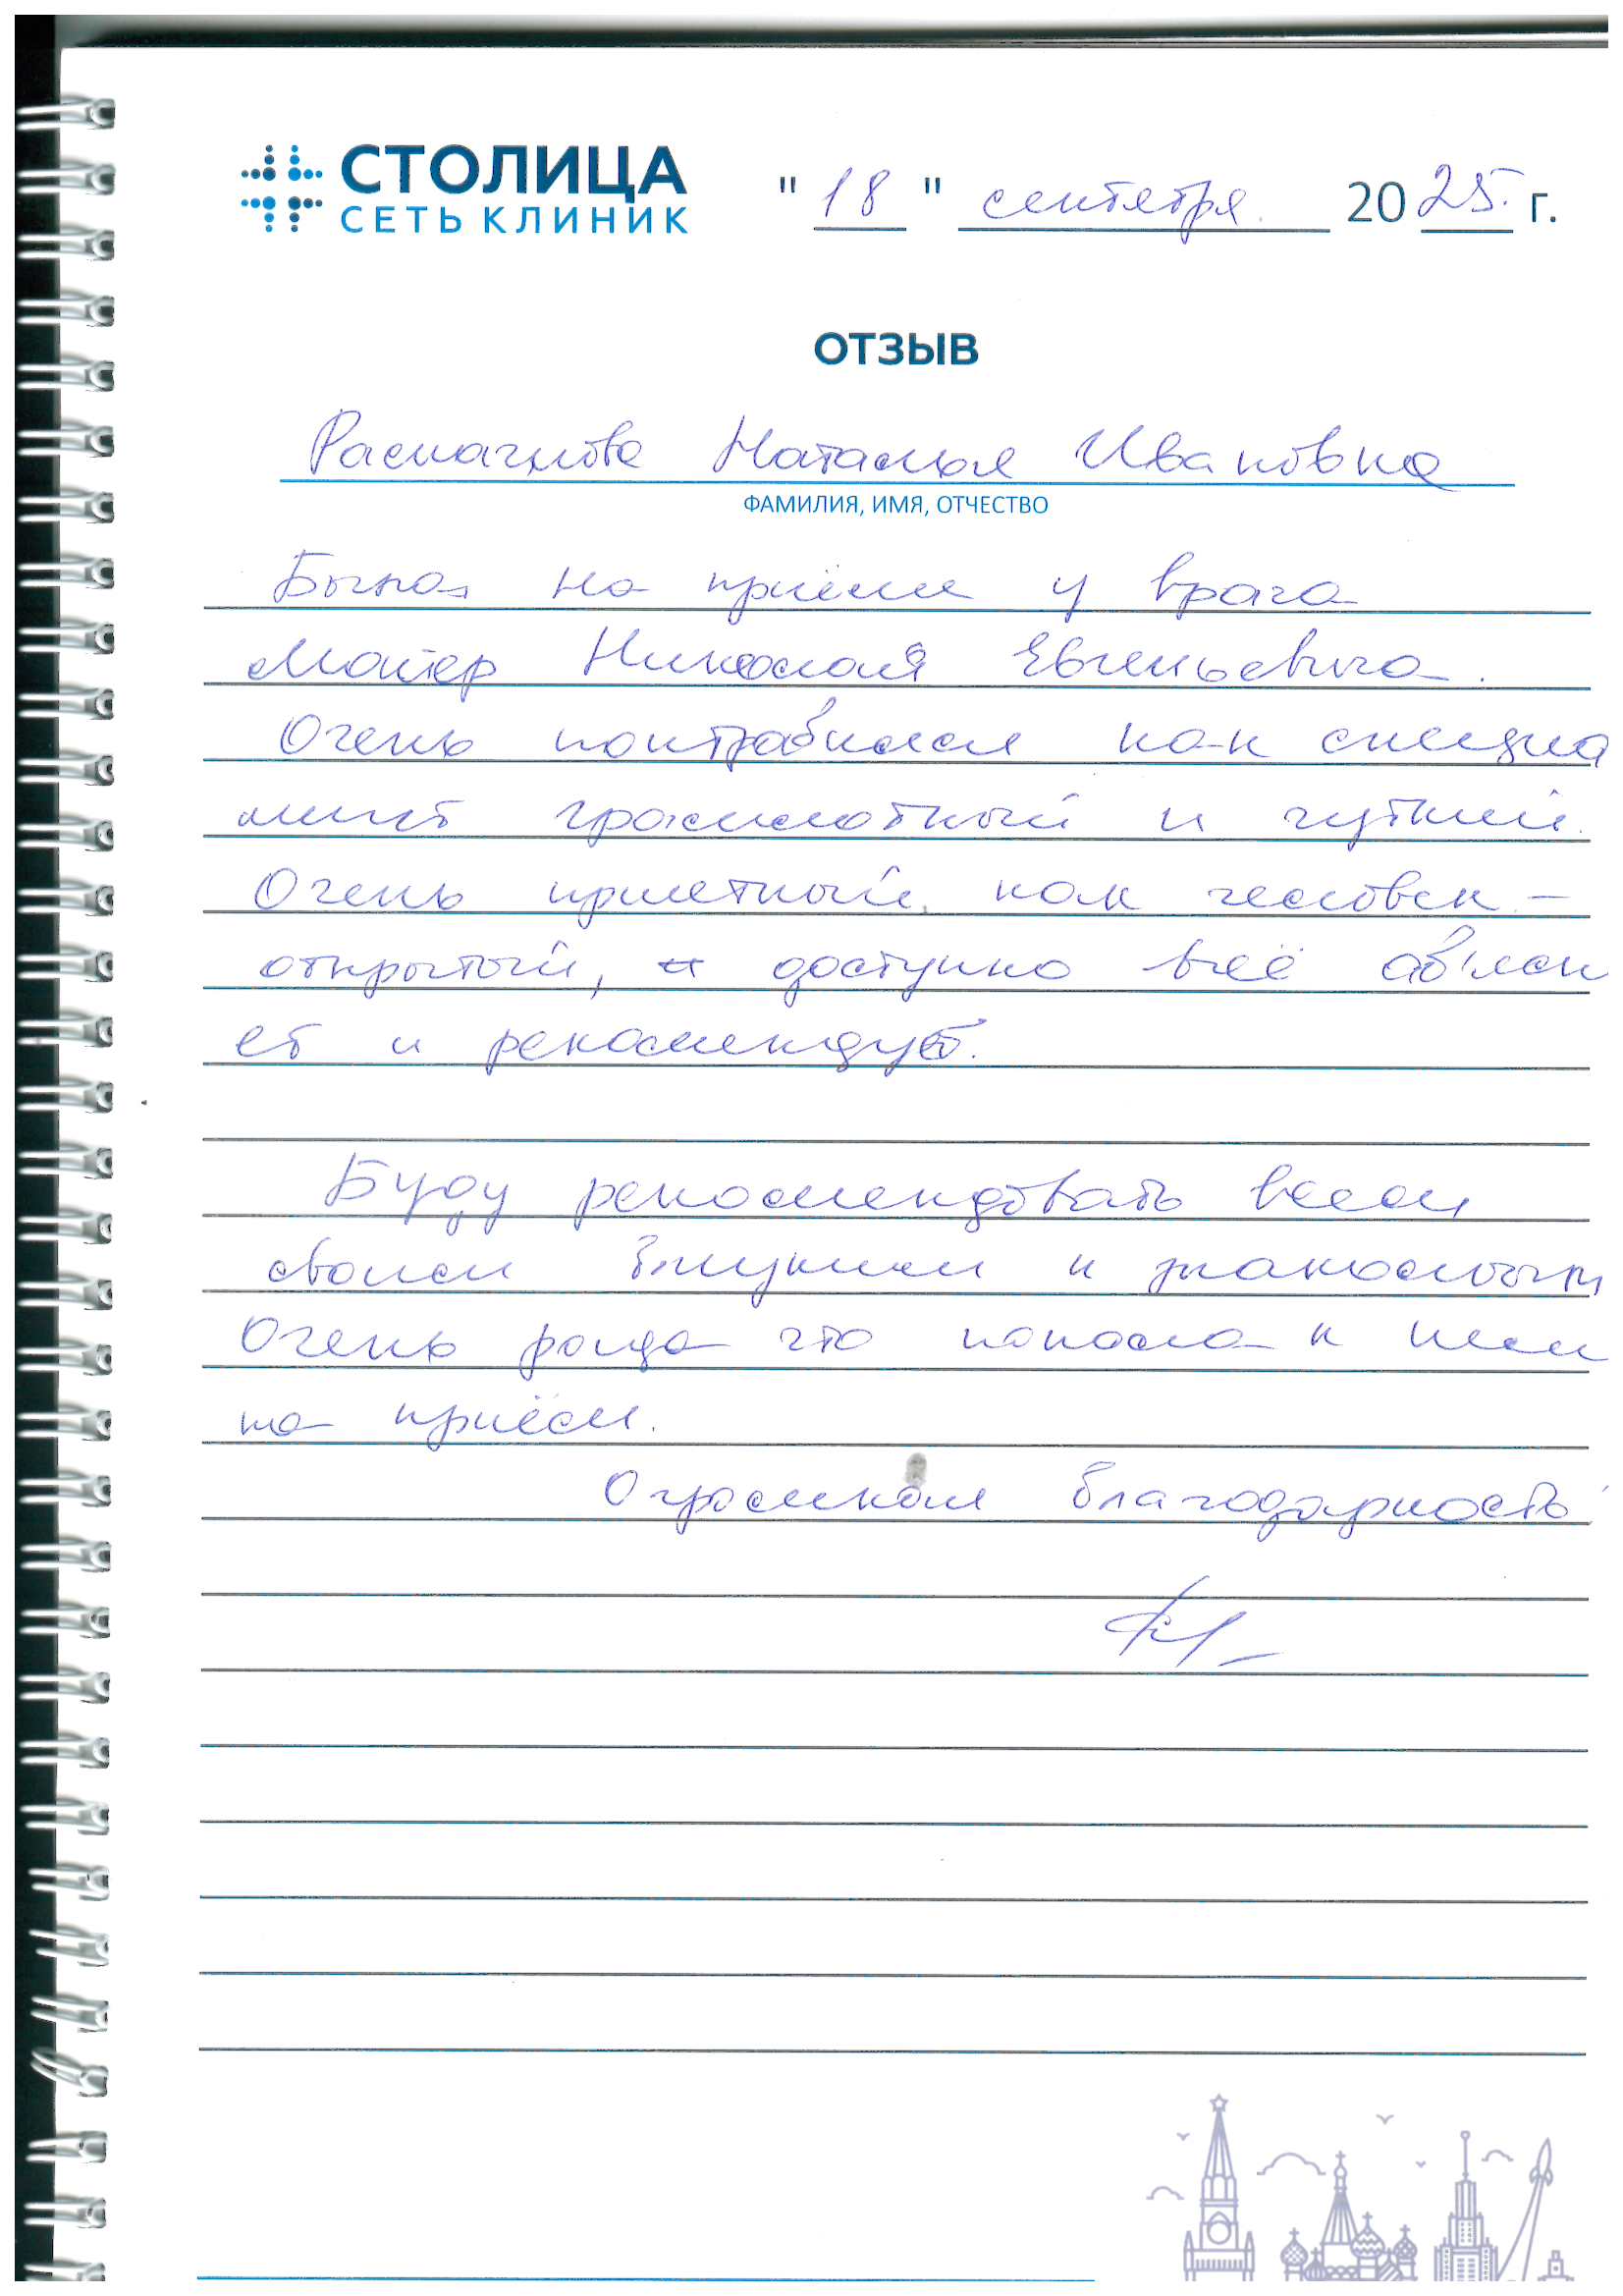 СТОЛИЦА
СЕТЬ КЛИНИК
" 18 " сентября 2025 г.
ОТЗЫВ
Наталья Ивановна
ФАМИЛИЯ, ИМЯ, ОТЧЕСТВО
Была на приёме у врача
Майер Николая Евгеньевича.
Очень понравился как специа
лист грамотный и чуткий.
Очень приятный как человек –
открытый, доступно всё объясн
ет и рекомендует.
Буду рекомендовать всем
своим близким и знакомым
Очень рада что попала к нему
на приём.
Огромная благодарность